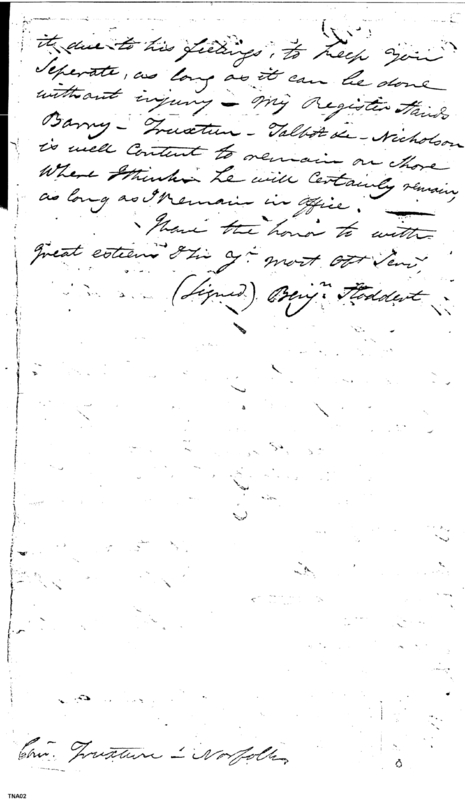 it due to his feelings, to keep you
Seperate, as long as it can be done
without injury — My Register stands
Barry — Truxtun — Talbot &c — Nicholson
is well Content to remain on Shore
Where I think he will Certainly remain,
as long as I remain in office. —
I have the honor to be with
great esteem &c Sir yr. most Obt Servt,
(Signed) Benjn. Stoddert
Truxtun — Norfolk
TNA02